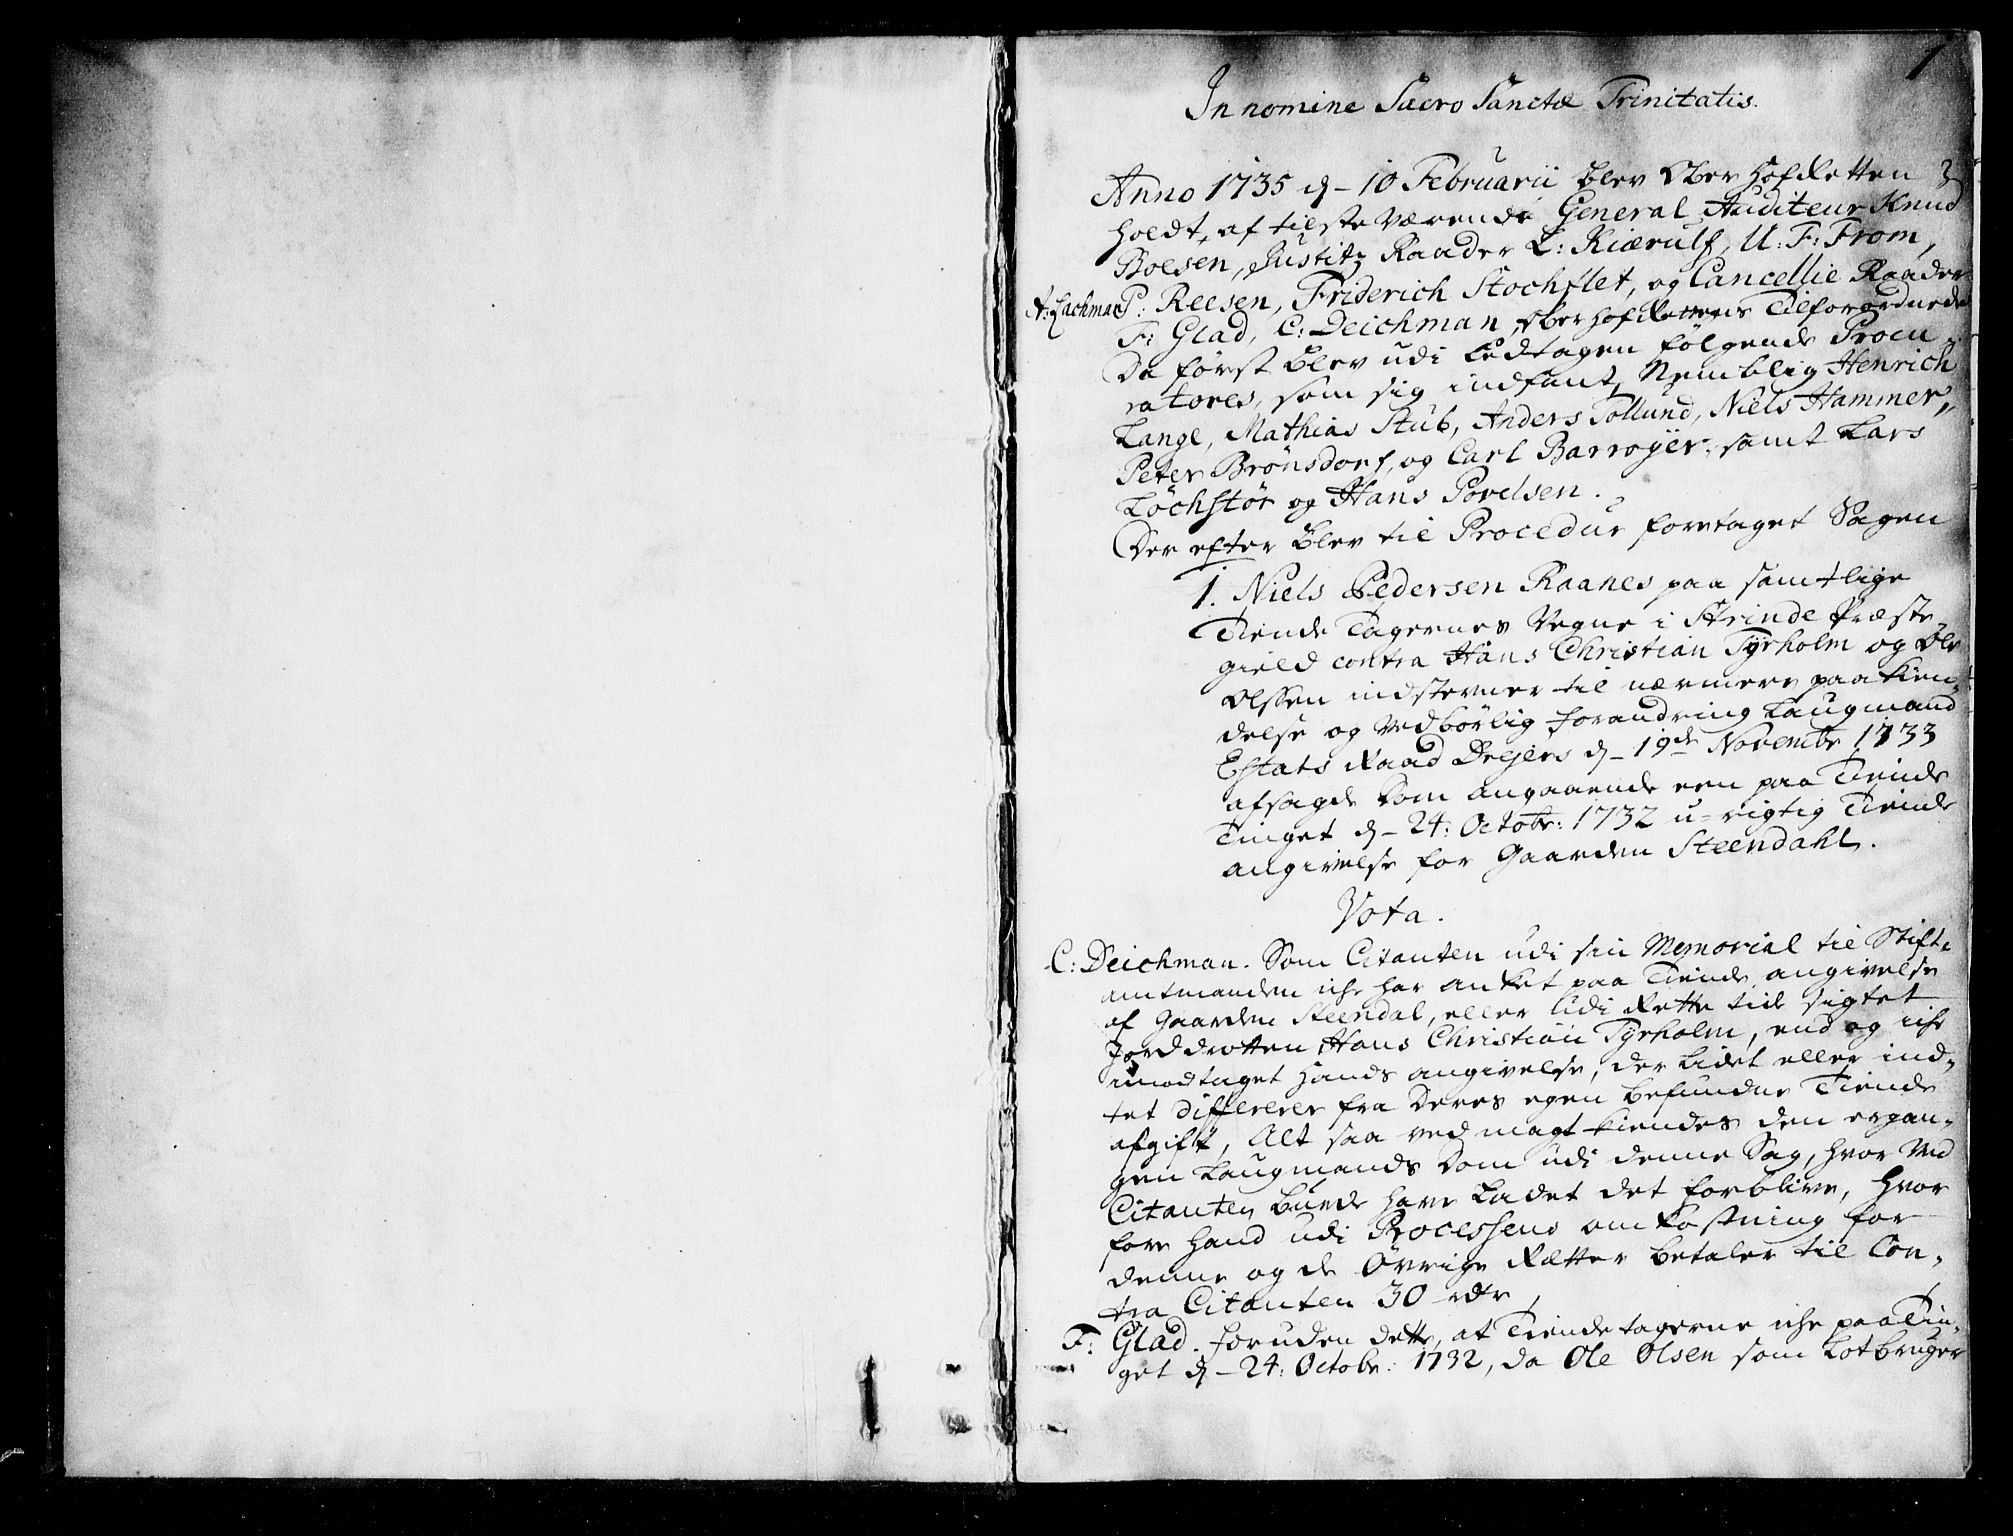 1
In nomine Sacro Sanctæ Trinitatis.
Anno 1735 d- 10 Februarii blev Ober Hof Retten
holdt, af tilsteværende General Auditeur Knud
Boesen, Justitz Raader L: Kiærulf, U: F: From,
A: Lachman P: Reesen, Friderich Stochflet, og Cancellie Raader
F: Glad, C: Deichman, Ober Hof Rettens Tilforordnede
Da først blev udi Eedtagen følgende Procu-
ratores, som sig indfant, Nemblig Henrich
Lange, Mathias Stub, Anders Tollund, Niels Hammer,
Peter Brønsdorf, og Carl Barroÿer, samt Lars
Löchstör og Hans Povelsen.
Der efter blev til Procedur foretaget Sagen
1. Niels Pedersen Raanes paa samtlige
Tiende Tagernes Vegne i Strinde Præste-
gield contra Hans Christian Tÿrholm og Ole
Olssen indstevner til nærmere paa kien-
delse og vedbørlig forandring Laugmand
Estats Raad Drejers d- 19de Novembr 1733
afsagde Dom angaaende een paa Tiende
Tinget d- 24: Octobr: 1732 u-rigtig Tiende
angivelse for Gaarden Steendahl.
Vota.
C: Deichman. Som Citanten udi sin Memorial til Stift-
amtmanden iche har anket paa Tiende angivelse
af Gaarden Steendal, eller udi Rette tiil sigtet
Jorddrotten Hans Christian Tÿrholm, end og iche
imodtaget hands angivelse, der lidet eller ind-
tet differerer fra deres egen befundne Tiende
afgift, Alt saa ved magt kiendes den ergan-
gen Laugmands Dom udi denne Sag, hvor ved
Citanten burde have ladet det forblive, hvor
fore hand udi Processens omkostning for
denne og de øvrige Rætter betaler til Con-
tra Citanten 30 rdr
F: Glad. foruden dette, at Tiendetagerne iche paa Tin-
get d- 24: Octobr: 1732, da Ole Olsen som Lotbruger